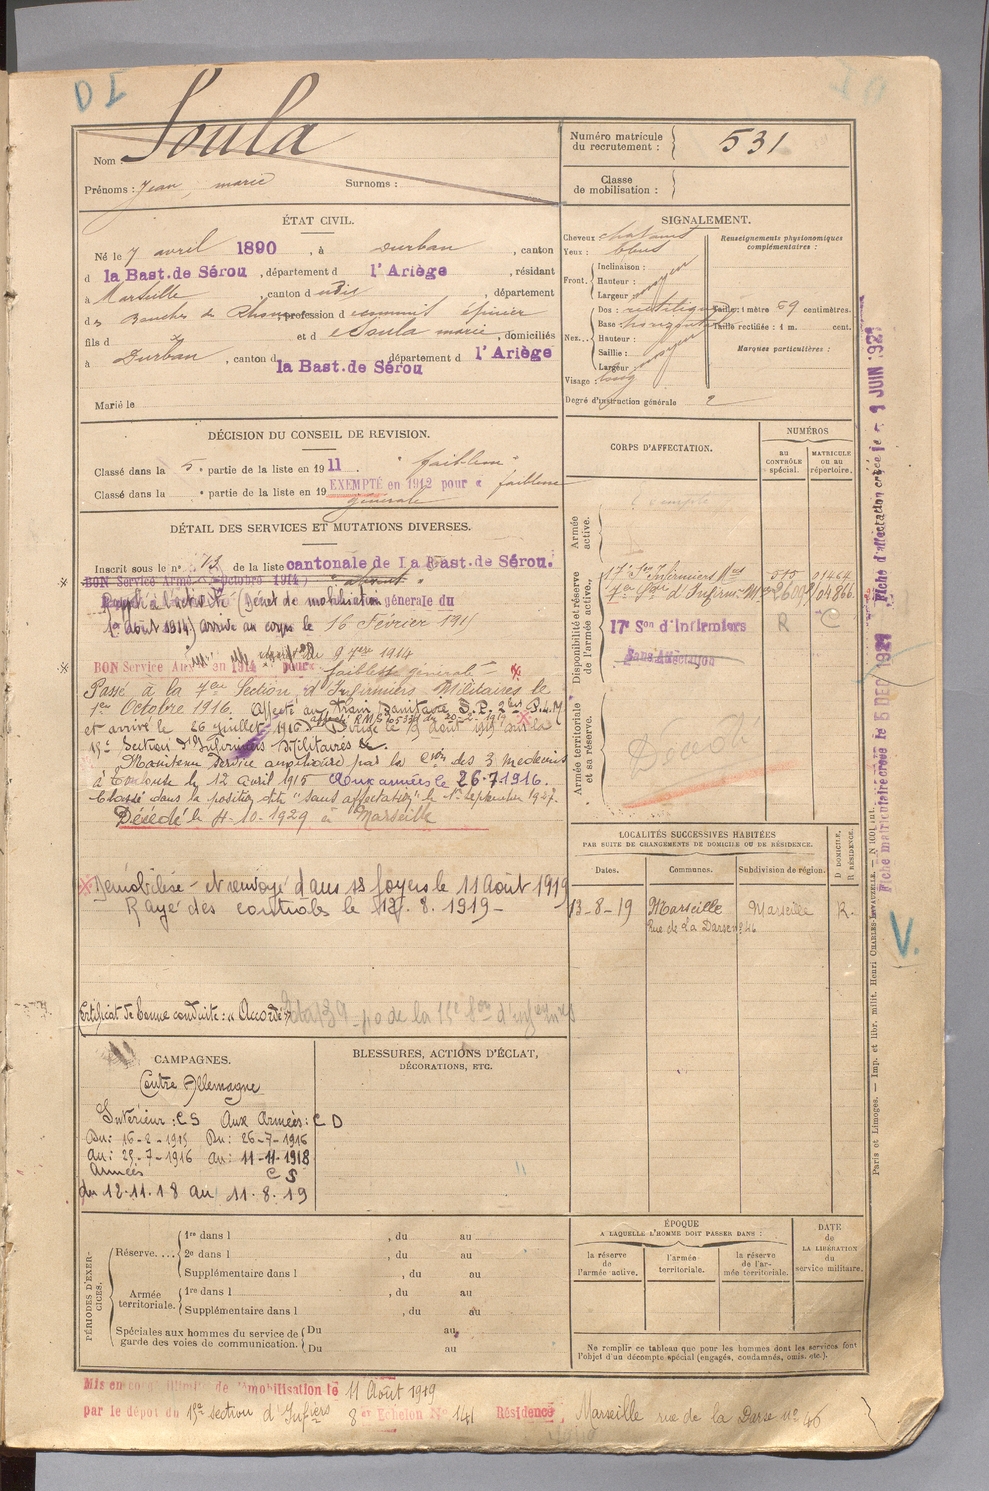 Nom : Soula
Prénoms : Jean marie Surnoms :
Numéro matricule du recrutement : 531
Classe de mobilisation :
ÉTAT CIVIL.
Né le 7 avril 1890, à Durban, canton
d la Bast.de Sérou, département d l'Ariège, résidant
à Marseille, canton d udis, département
des Bouches du Rhone, profession d commis épicier
fils d et d Soula marie, domiciliés
à Durban, canton d la Bast.de Sérou département d l'Ariège
Marié le
SIGNALEMENT.
Cheveux chatains
Yeux : bleus
Front. Inclinaison :
Hauteur : moyen
Largeur :
Nez... Dos : rectiligne
Base : horizontal
Hauteur :
Saillie : moyen
Largeur :
Visage : long
Renseignements physionomiques complémentaires :
Taille : 1 mètre 69 centimètres.
Taille rectifiée : 1 m. cent.
Marques particulières :
Degré d'instruction générale 2
DÉCISION DU CONSEIL DE REVISION.
Classé dans la 5e partie de la liste en 1911 "faiblesse"
Classé dans la e partie de la liste en 19 EXEMPTÉ en 1912 pour « faiblesse
générale
DÉTAIL DES SERVICES ET MUTATIONS DIVERSES.
Inscrit sous le n° 13 de la liste cantonale de La Bast.de Sérou.
BON Service Armé (Octobre 1914) "absent"
Rappelé à l'activité (Décret de mobilisation générale du
1er août 1914) arrivé au corps le 16 Février 1915
BON Service Aux en 1914 pour « faiblesse générale »
Passé à la 7eme Section d'Infirmiers Militaires le
1er Octobre 1916. Affecté au Train Sanitaire S.P. 2bis P.L.M
et arrivé le 26 juillet 1916. Passé le 13 août 1919 à la
15e Section d'Infirmiers Militaires
Maintenu service auxiliaire par la Con des 3 medecins
à Toulouse le 12 avril 1915 Aux armées le 26-7-1916.
Classé dans la position dite "sans affectation" le 1er Septembre 1927.
Décédé le 4-10-1929 à Marseille
Démobilisé et renvoyé dans ses foyers le 11 Août 1919
Rayé des contrôles le 12.8.1919
Certificat de bonne conduite : « Accordé »
CORPS D'AFFECTATION.
NUMÉROS
AU CONTRÔLE spécial.
MATRICULE OU AU répertoire.
Armée active.
Disponibilité et réserve de l'armée active.
17e Son Infirmiers Mres 515 01464
7eme Son d'Infirm. Mres 2600 04866
17e Son d'Infirmiers R C
Sans Affectation
Armée territoriale et sa réserve.
Décédé
LOCALITÉS SUCCESSIVES HABITÉES
PAR SUITE DE CHANGEMENTS DE DOMICILE OU DE RÉSIDENCE.
Dates. Communes. Subdivision de région. D DOMICILE, R RÉSIDENCE.
13-8-19 Marseille Marseille R.
Rue de La Darse n° 46
CAMPAGNES.
Contre Allemagne
Intérieur : CS Aux Armées : CD
Du : 16-2-1915 Du : 26-7-1916
Au : 25-7-1916 au : 11-11-1918
Armées CS
du 12.11.18 au 11.8.19
BLESSURES, ACTIONS D'ÉCLAT,
DÉCORATIONS, ETC.
PÉRIODES D'EXERCICES.
Réserve.... 1re dans l , du au
2e dans l , du au
Supplémentaire dans l , du au
Armée territoriale. 1re dans l , du au
Supplémentaire dans l , du au
Spéciales aux hommes du service de garde des voies de communication. Du au
Du au
ÉPOQUE
A LAQUELLE L'HOMME DOIT PASSER DANS :
la réserve de l'armée active.
l'armée territoriale.
la réserve de l'armée territoriale.
DATE de LA LIBÉRATION du service militaire.
Ne remplir ce tableau que pour les hommes dont les services font
l'objet d'un décompte spécial (engagés, condamnés, omis, etc.).
Mis en congé illimité de démobilisation le 11 Août 1919
par le dépôt du 15e section d'Infiers 8e Echelon N° 141 Résidence : Marseille rue de la Darse n° 46
Fiche d'affectation créée le 9 JUIN 192
Fiche matriculaire créée le 5 DEC 192
V.
Paris et Limoges. — Imp. et libr. milit. Henri CHARLES-LAVAUZELLE.